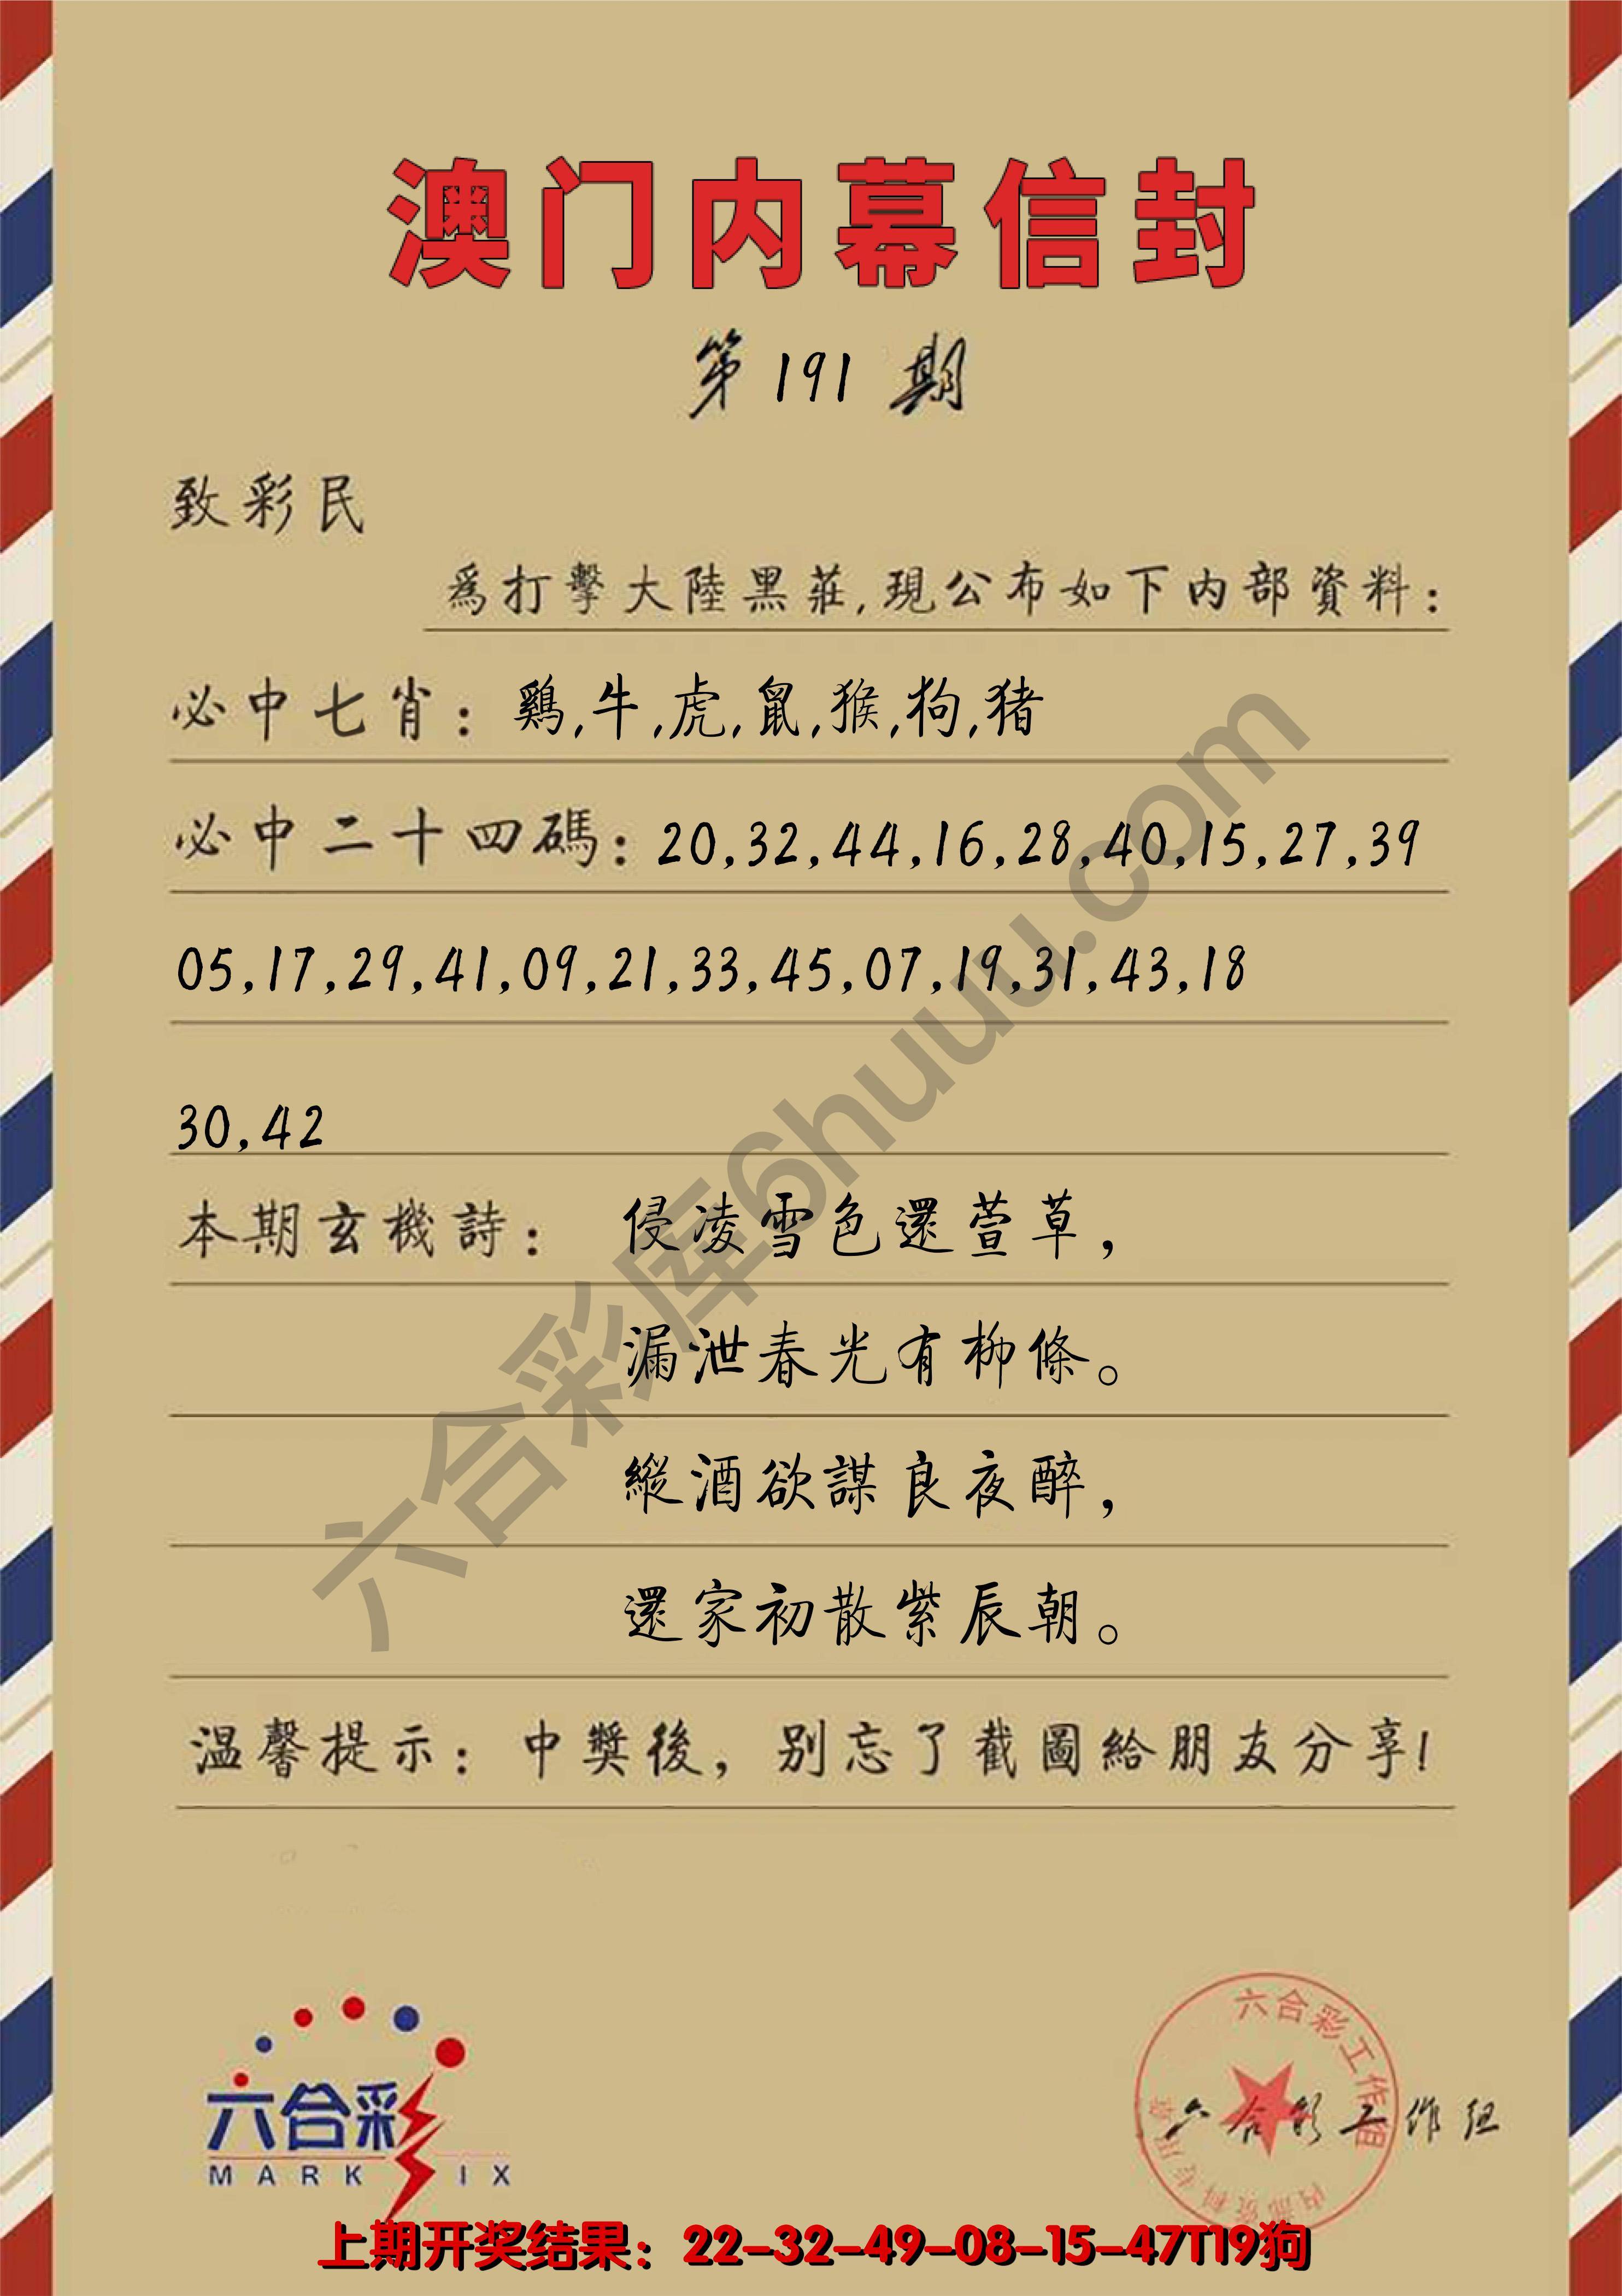 澳门内幕信封
第 191 期
致彩民
為打擊大陸黑莊,現公布如下内部資料:
必中七肖: 鷄,牛,虎,鼠,猴,狗,猪
必中二十四碼: 20,32,44,16,28,40,15,27,39
05,17,29,41,09,21,33,45,07,19,31,43,18
30,42
本期玄機詩: 侵凌雪色還萱草,
漏泄春光有柳條。
縱酒欲謀良夜醉,
還家初散紫辰朝。
温馨提示: 中獎後, 别忘了截圖給朋友分享!
六合彩库6huuu.com
六合彩
MARK SIX
六合彩工作组
内部资料专用章
六合彩工作组
上期开奖结果: 22-32-49-08-15-47T19狗